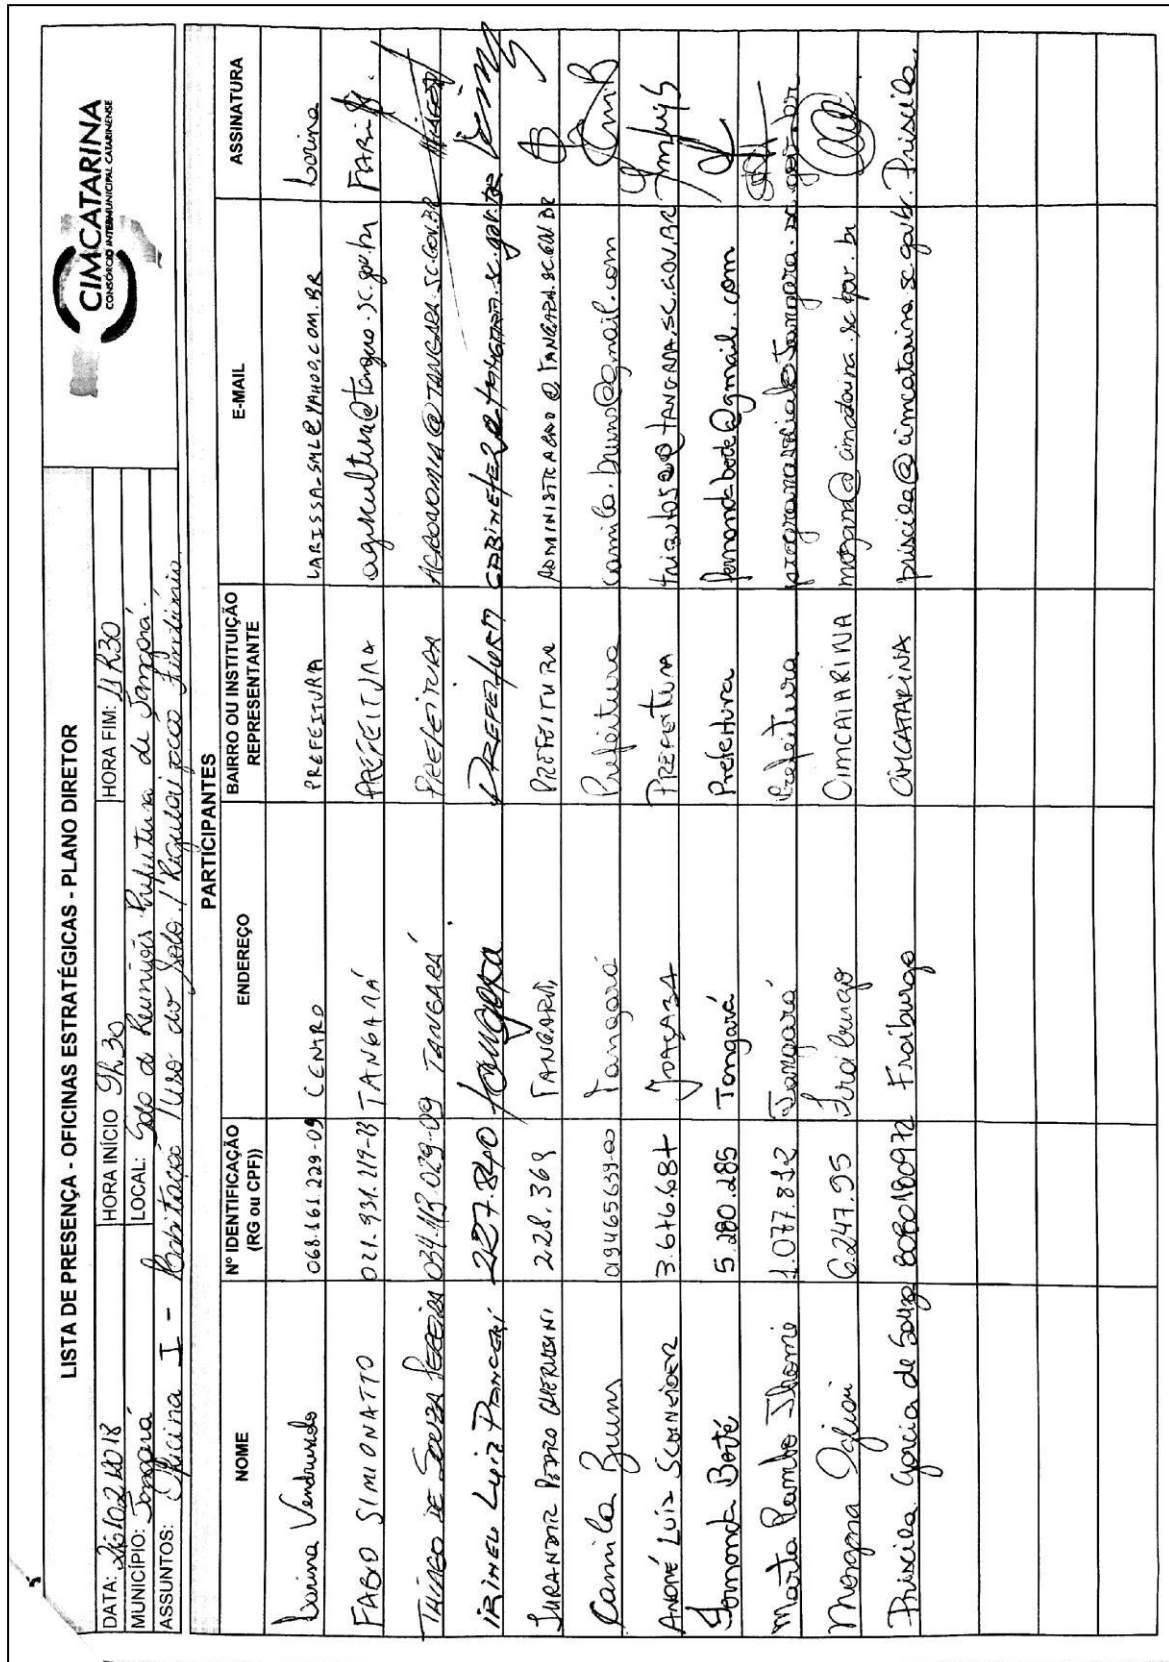 LISTA DE PRESENÇA - OFICINAS ESTRATÉGICAS - PLANO DIRETOR
CIMCATARINA
CONSÓRCIO INTERMUNICIPAL CATARINENSE
DATA: 26/02/2018 HORA INÍCIO 9h30 HORA FIM: 11h30
MUNICÍPIO: Tangará LOCAL: Sala d Reuniões Prefeitura de Tangará.
ASSUNTOS: Oficina I - Habitação / Uso do Solo / Regularização Fundiária
PARTICIPANTES
NOME Nº IDENTIFICAÇÃO (RG ou CPF)) ENDEREÇO BAIRRO OU INSTITUIÇÃO REPRESENTANTE E-MAIL ASSINATURA
068.161.229-09 CENTRO PREFEITURA LARISSA-SML@YAHOO.COM.BR
FABIO SIMIONATTO 021.931.119-13 TANGARÁ PREFEITURA agricultura@tangara.sc.gov.br
THIAGO DE SOUZA PEREIRA 034.413.029-09 TANGARÁ PREFEITURA AGRONOMIA@TANGARA.SC.GOV.BR
IRINEU LUIZ PANCERI 227.840 TANGARA PREFEITURA GABINETE2@TANGARA.sc.gov.br
JURANDIR PEDRO 228.369 TANGARÁ PREFEITURA ADMINISTRACAO@TANGARA.SC.GOV.BR
Camila Bruns 01946563900 Tangará Prefeitura camila.bruns@gmail.com
ANDRÉ LUIZ SCHNEIDER 3.676.687 JOAÇABA PREFEITURA TANGARA.SC.GOV.BR
Fernanda Boté 5.280.285 Tangará Prefeitura fernandabote@gmail.com
Marta Rambo Thomé 1.077.812 Tangará Prefeitura programasocial@tangara.sc.gov.br
Morgana 6.247.95 Fraiburgo CIMCATARINA morgana@cimcatarina.sc.gov.br
Priscila Garcia de Souza 8060180972 Fraiburgo CIMCATARINA priscila@cimcatarina.sc.gov.br Priscila